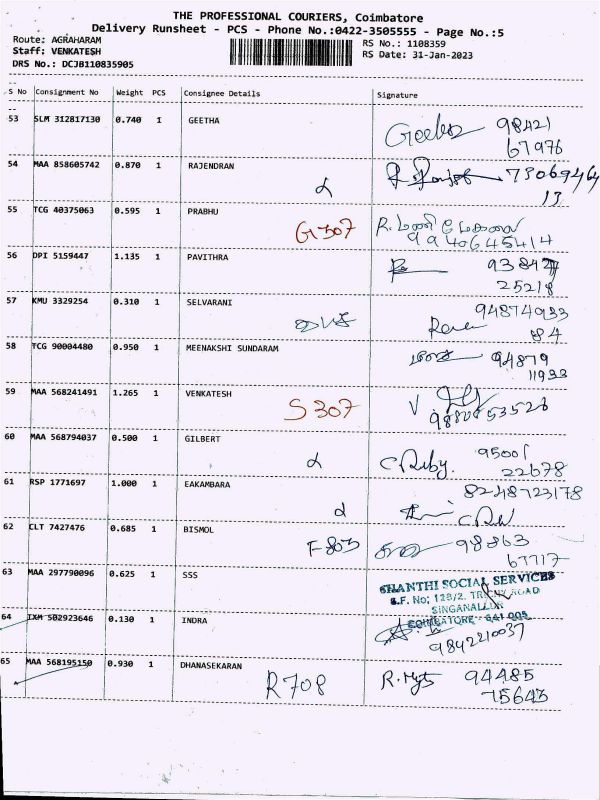 THE PROFESSIONAL COURIERS, Coimbatore
Delivery Runsheet - PCS - Phone No.:0422-3505555 - Page No.:5
Route: AGRAHARAM RS No.: 1108359
Staff: VENKATESH RS Date: 31-Jan-2023
DRS No.: DCJB110835905
S No Consignment No Weight PCS Consignee Details Signature
53 SLM 312817130 0.740 1 GEETHA Geetha 98421
67976
54 MAA 858605742 0.870 1 RAJENDRAN
13
55 TCG 40375063 0.595 1 PRABHU G307 R. மணிமேகலை
9940645414
56 DPI 5159447 1.135 1 PAVITHRA
25218
57 KMU 3329254 0.310 1 SELVARANI 94874933
84
58 TCG 90004480 0.950 1 MEENAKSHI SUNDARAM 94879
11933
59 MAA 568241491 1.265 1 VENKATESH S307 V
60 MAA 568794037 0.500 1 GILBERT C Ruby. 95001
22678
61 RSP 1771697 1.000 1 EAKAMBARA 8248723178
62 CLT 7427476 0.685 1 BISMOL F803 98863
67717
63 MAA 297790096 0.625 1 SSS SHANTHI SOCIAL SERVICES
S.F. No; 128/2. TRICHY ROAD
SINGANALLUR
COIMBATORE - 641 005
64 IXM 502923646 0.130 1 INDRA 9842210037
65 MAA 568195150 0.930 1 DHANASEKARAN R708 94485
75643